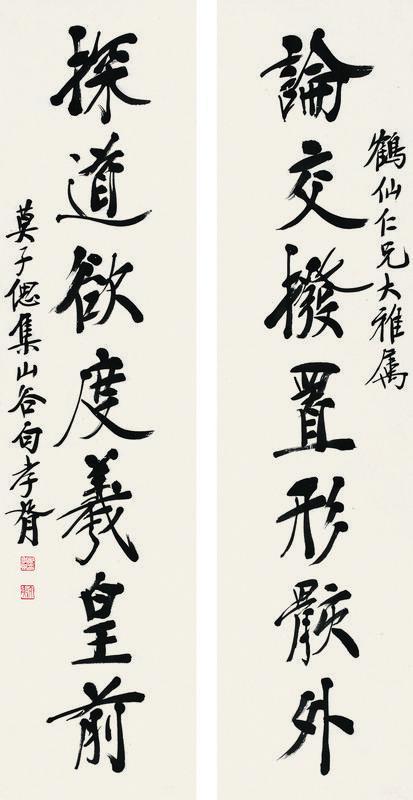 鶴仙仁兄大雅属
論交撥置形骸外
探道欲度羲皇前
莫子偲集山谷句孝胥